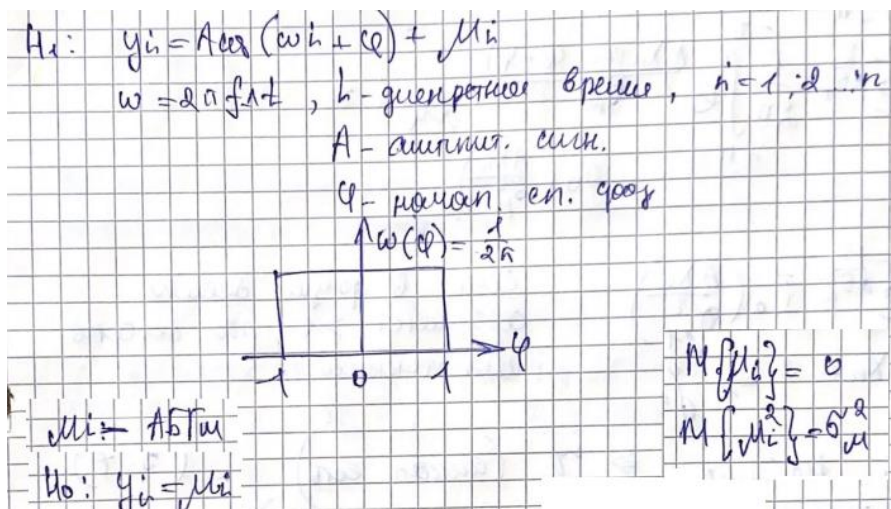 H₁: yᵢ = A cos (ωi + φ) + μᵢ
ω = 2πfΔt, i - дискретное время, i = 1, 2 ... n
A - амплит. сигн.
φ - начал. сл. фаз
ω(φ) = 1/2π
-1 0 1 φ
M{μᵢ} = 0
μᵢ - АБГШ
M{μᵢ²} = σ²μ
H₀: yᵢ = μᵢ